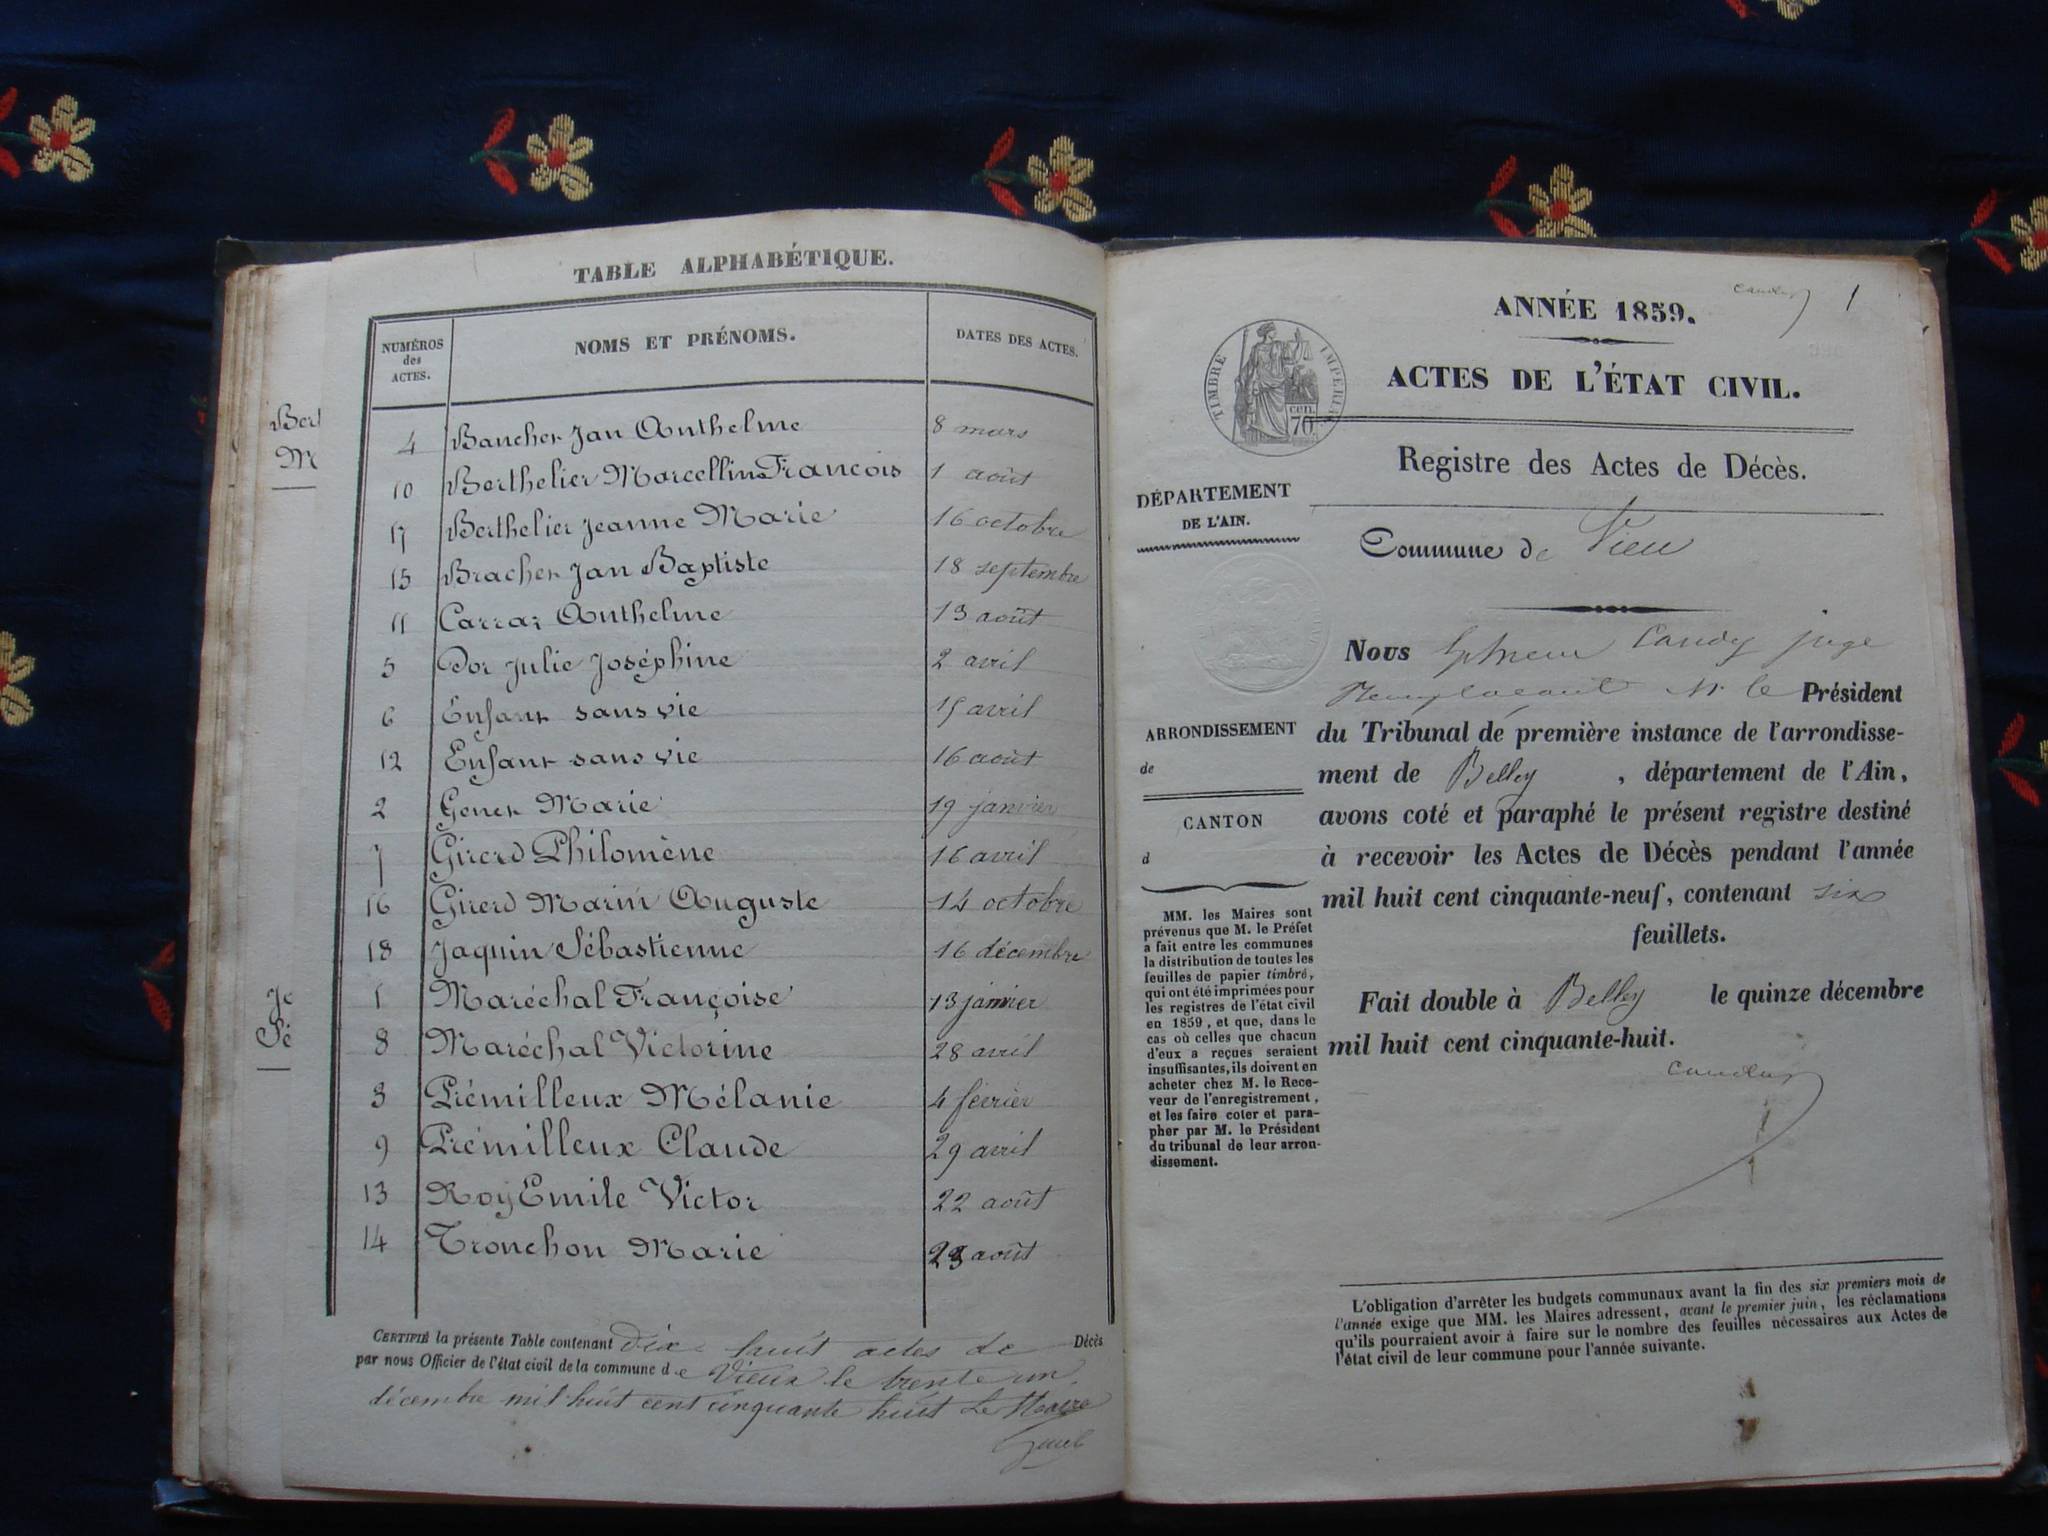 TABLE ALPHABÉTIQUE.
NUMÉROS
des
ACTES.
NOMS ET PRÉNOMS.
DATES DES ACTES.
Bert
M
4 Bancher Jan Anthelme 8 mars
10 Berthelier Marcellin François 1 août
17 Berthelier Jeanne Marie 16 octobre
15 Bracher Jan Baptiste 18 septembre
11 Carraz Anthelme 13 août
5 Dor Julie Joséphine 2 avril
6 Enfant sans vie 15 avril
12 Enfant sans vie 16 août
2 Gener Marie 19 janvier
7 Girerd Philomène 16 avril
16 Girerd Marin Auguste 14 octobre
18 Jaquin Sébastienne 16 décembre
1 Maréchal Françoise 13 janvier
8 Maréchal Victorine 28 avril
3 Prémilleux Mélanie 4 février
9 Prémilleux Claude 29 avril
13 Roy Emile Victor 22 août
14 Tronchon Marie 23 août
Je
Sé
CERTIFIÉ la présente Table contenant dix huit actes de Décès
par nous Officier de l'état civil de la commune de Vieux le trente un
décembre mil huit cent cinquante huit Le Maire
ANNÉE 1859.
1
TIMBRE IMPERIAL
cen.
70
ACTES DE L'ÉTAT CIVIL.
Registre des Actes de Décès.
DÉPARTEMENT
DE L'AIN.
Commune de Vieu
ARRONDISSEMENT
de
CANTON
d
MM. les Maires sont
prévenus que M. le Préfet
a fait entre les communes
la distribution de toutes les
feuilles de papier timbré,
qui ont été imprimées pour
les registres de l'état civil
en 1859, et que, dans le
cas où celles que chacun
d'eux a reçues seraient
insuffisantes, ils doivent en
acheter chez M. le Rece-
veur de l'enregistrement,
et les faire coter et para-
pher par M. le Président
du tribunal de leur arron-
dissement.
Nous Candy juge
Remplacant Mr le Président
du Tribunal de première instance de l'arrondisse-
ment de Belley, département de l'Ain,
avons coté et paraphé le présent registre destiné
à recevoir les Actes de Décès pendant l'année
mil huit cent cinquante-neuf, contenant six
feuillets.
Fait double à Belley le quinze décembre
mil huit cent cinquante-huit.
L'obligation d'arrêter les budgets communaux avant la fin des six premiers mois de
l'année exige que MM. les Maires adressent, avant le premier juin, les réclamations
qu'ils pourraient avoir à faire sur le nombre des feuilles nécessaires aux Actes de
l'état civil de leur commune pour l'année suivante.